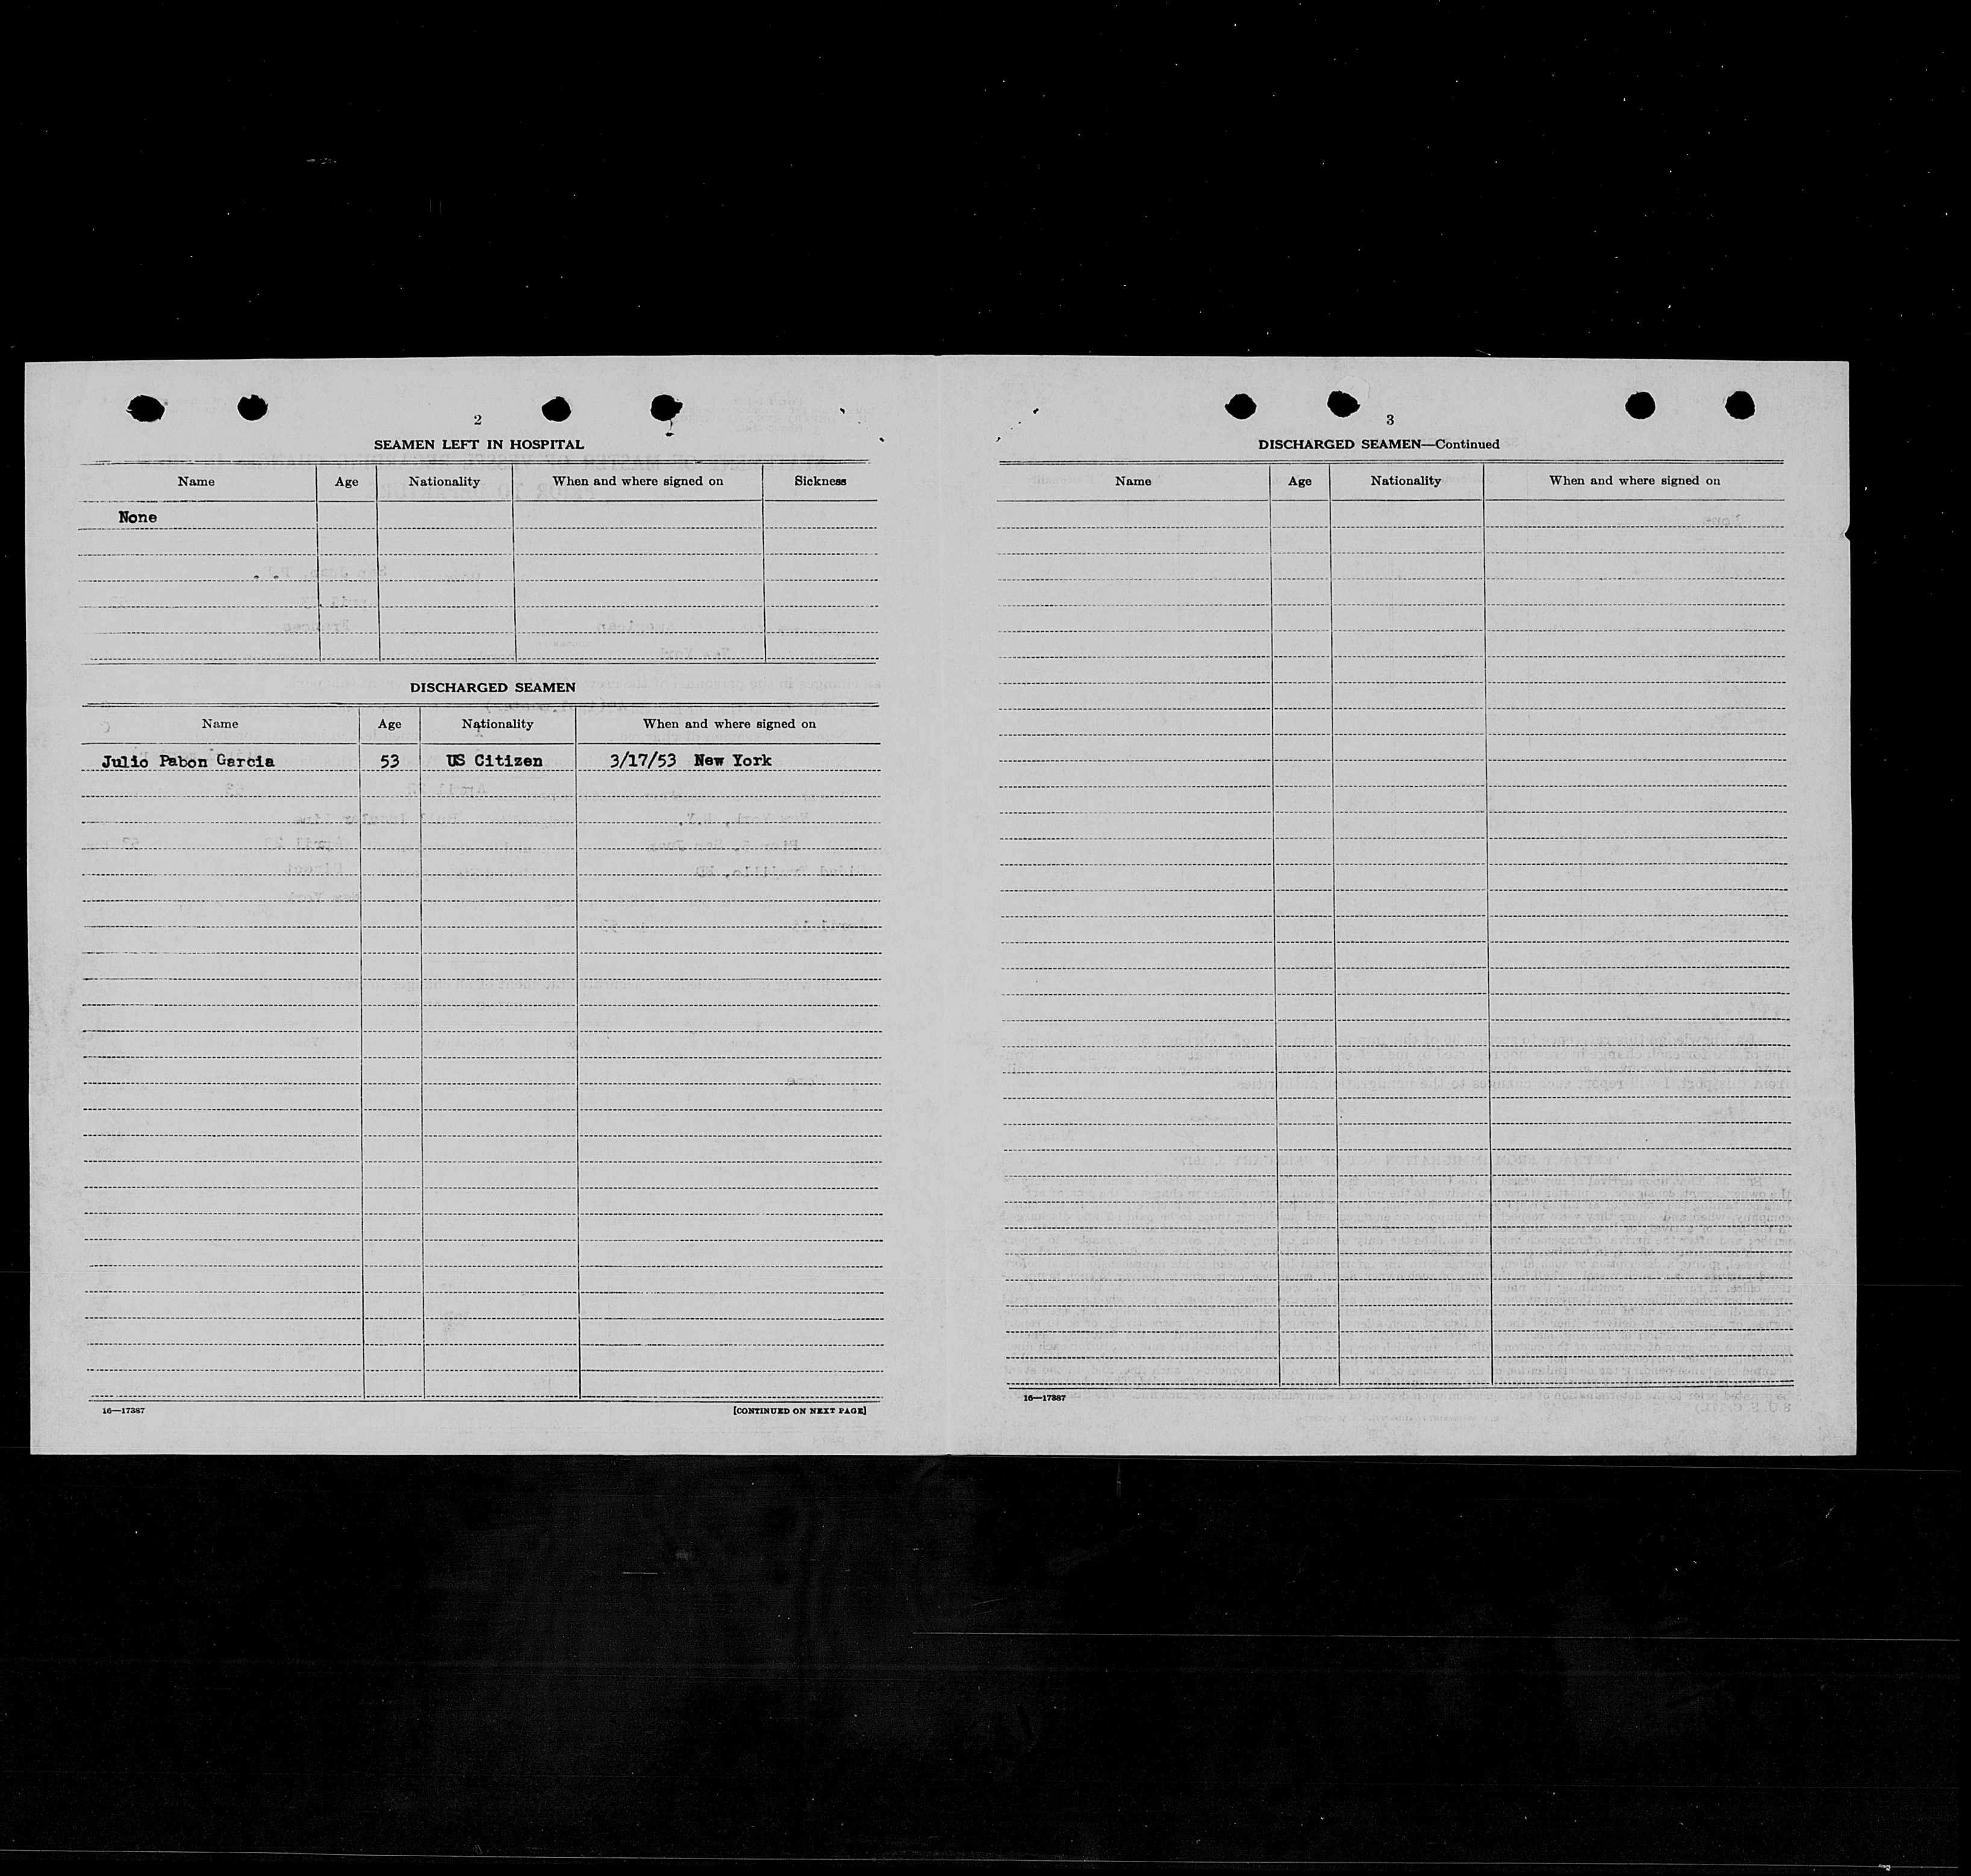 2
SEAMEN LEFT IN HOSPITAL
Name Age Nationality When and where signed on Sickness
None
DISCHARGED SEAMEN
Name Age Nationality When and where signed on
Julio Pabon Garcia 53 US Citizen 3/17/53 New York
16—17387 [CONTINUED ON NEXT PAGE]
3
DISCHARGED SEAMEN—Continued
Name Age Nationality When and where signed on
16—17387